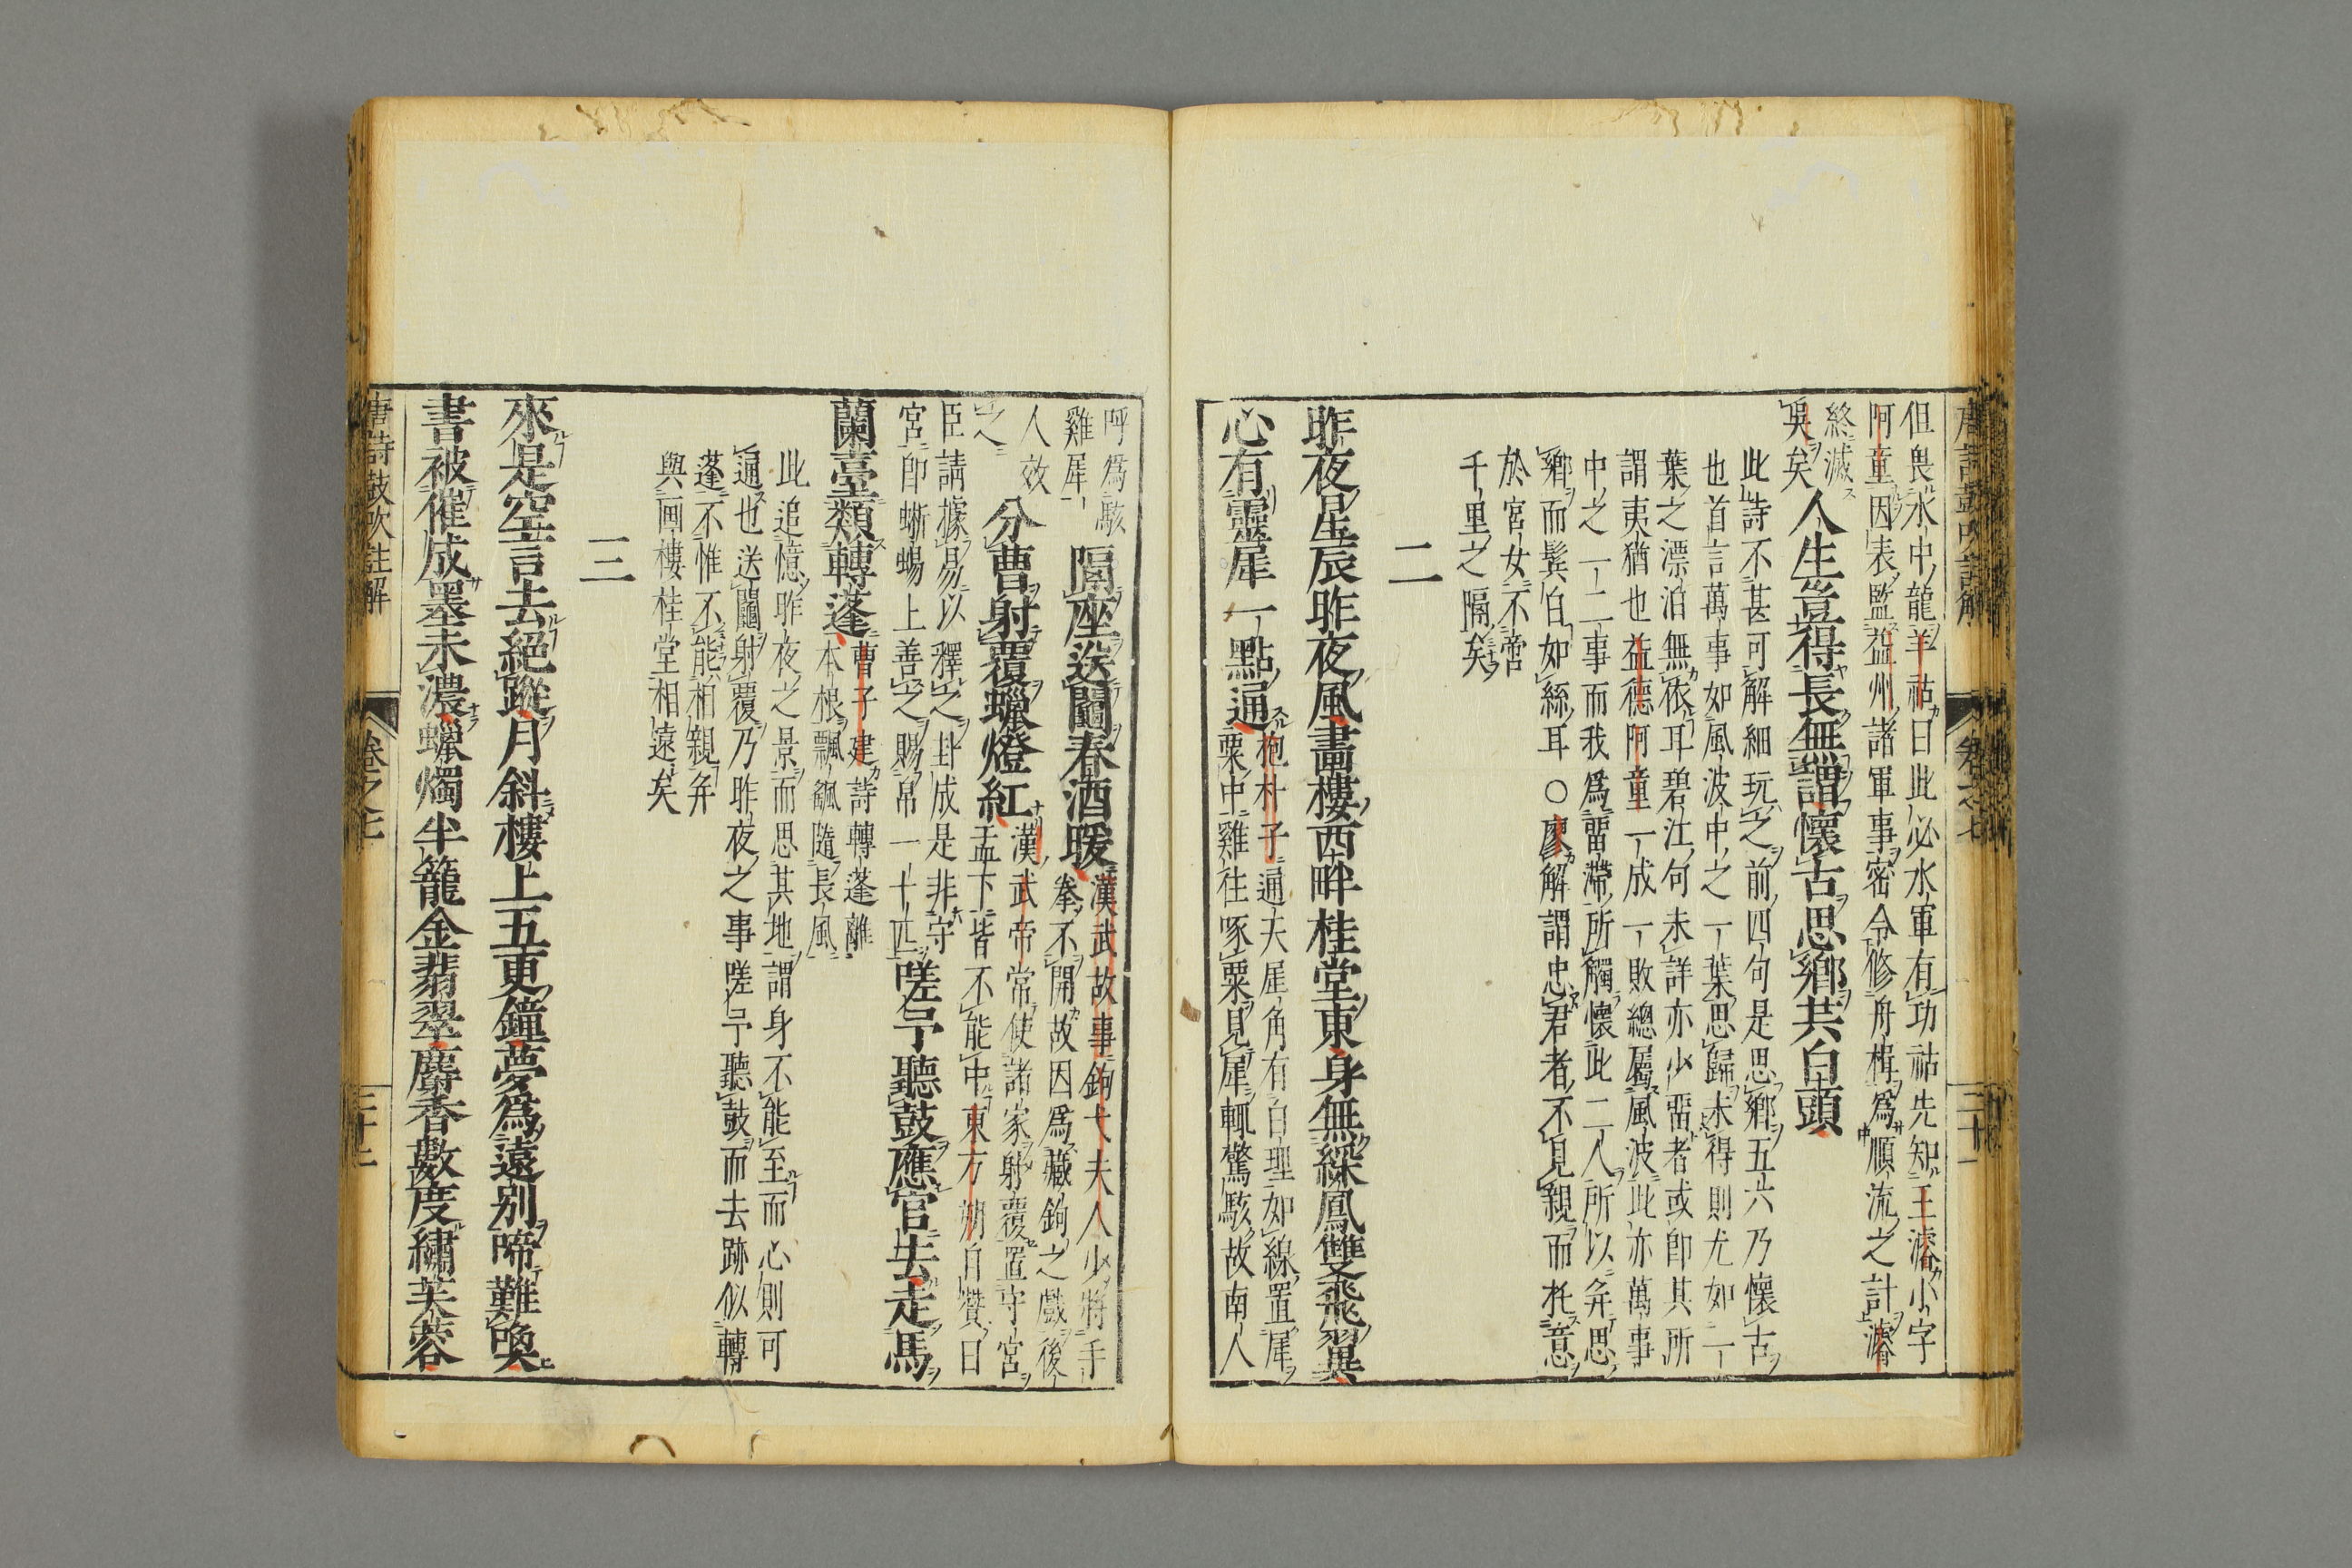 唐詩鼓吹註解
卷之七
三十一
但畏水中龍羊祜曰此必水軍有功祜先知王濬小字
阿童因表監益州諸軍事密令修舟楫為順流之計濬
終滅
吳矣
人生豈得長無謂懷古思鄉共白頭
此詩不甚可解細玩之前四句是思鄉五六乃懷古
也首言萬事如風波中之一葉思歸未得則尤如一
葉之漂泊無依耳碧江句未詳亦少留者或即其所
謂夷猶也益德阿童一成一敗總屬風波此亦萬事
中之一二事而我為留滯所觸懷此二人所以弁思
鄉而鬂白如絲耳○廖解謂忠君者不見親而托意
於宮女不啻
千里之隔矣
二
昨夜星辰昨夜風畫樓西畔桂堂東身無綵鳳雙飛翼
心有靈犀一點通
抱朴子通天犀角有白理如線置犀
粟中雞往啄粟見犀輒驚駭故南人
呼為駭
雞犀
隔座送鬮春酒暖
漢武故事鉤弋夫人少時手
拳不開故因為藏鉤之戲後
人效
之
分曹射覆蠟燈紅
漢武帝常使諸家射覆置守宮
盂下皆不能中東方朔自贊曰
臣請據易以釋之卦成是非守
宮即蜥蜴上善之賜帛一十匹
嗟予聽鼓應官去走馬
蘭臺類轉蓬
曹子建詩轉蓬離
本根飄颻隨長風
此追憶昨夜之景而思其地謂身不能至而心則可
通也送鬮射覆乃昨夜之事嗟予聽鼓而去跡似轉
蓬不惟不能相親弁
與画樓桂堂相遠矣
三
來是空言去絕蹤月斜樓上五更鐘夢為遠別啼難喚
書被催成墨未濃蠟燭半籠金翡翠麝香數度繡芙蓉
唐詩鼓吹註解
卷之七
三十二